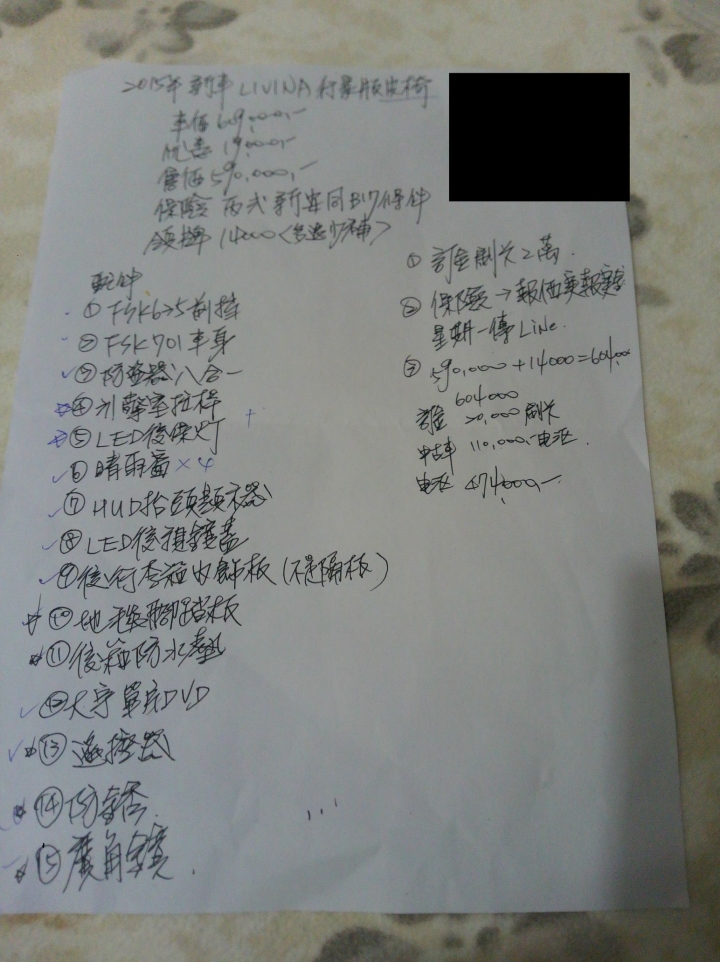 2015年 新車 LIVINA 行家版皮椅
車価 609,000,-
優惠 19,000,-
售価 590,000,-
保險 丙式 新安同B17條件
領牌 14000<多退少補>
配件
① FSK625前擋
② FSK701車身
③ 防盜器 八合一
④ 引擎室拉桿
⑤ LED後保灯
⑥ 晴雨窗 ×4
⑦ HUD抬頭顯示器
⑧ LED後視鏡蓋
⑨ 後行李箱內飾板(不是隔板)
⑩ 地毯腳踏板
⑪ 後箱防水墊
⑫ 大宇單片DVD
⑬ 遙控器
⑭ 防鏽
⑮ 廣角鏡.
① 訂金刷卡2萬.
② 保險→報価實報實
星期一傳 Line.
③ 590,000 + 14000 = 604,000
604000
訂金 20,000 刷卡
中古車 110,000,- 电汇.
电汇 474,000,-